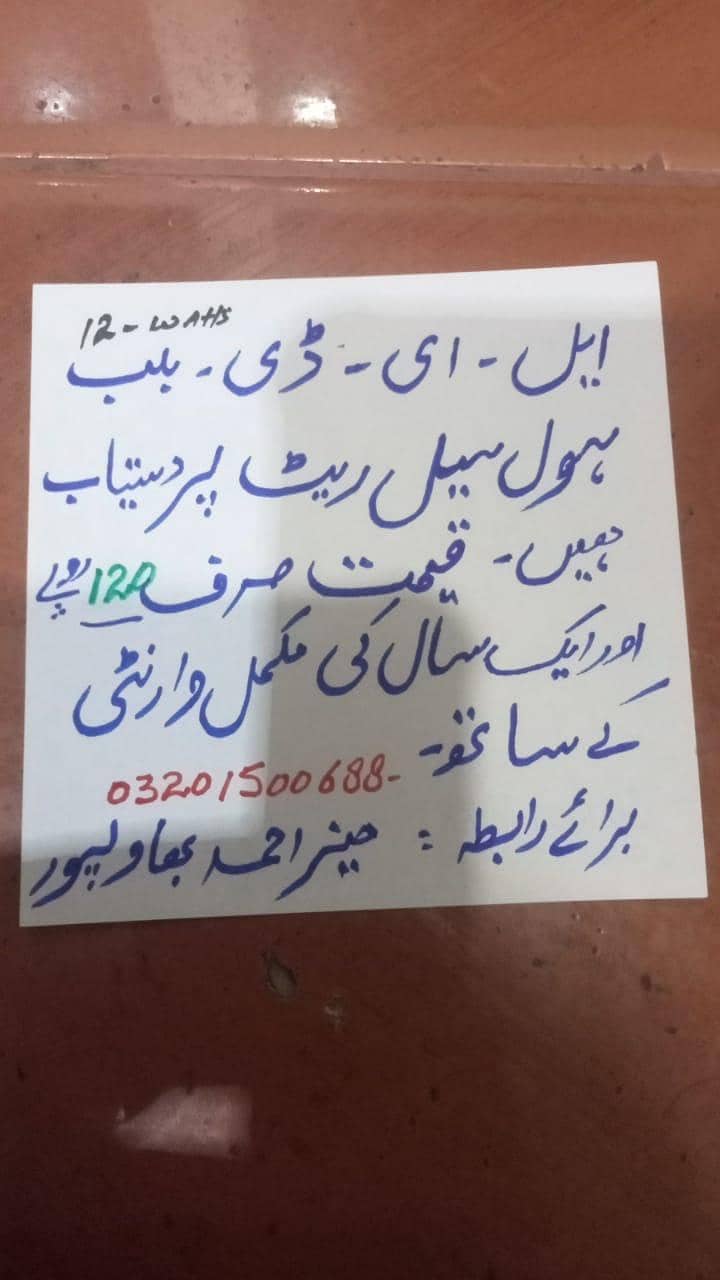 12-WATTS
ایل - ای - ڈی - بلب
ہول سیل ریٹ پر دستیاب
ہیں - قیمت صرف 120 روپے
اور ایک سال کی مکمل وارنٹی
کے ساتھ -
03201500688-
برائے رابطہ : احمد بھاولپور